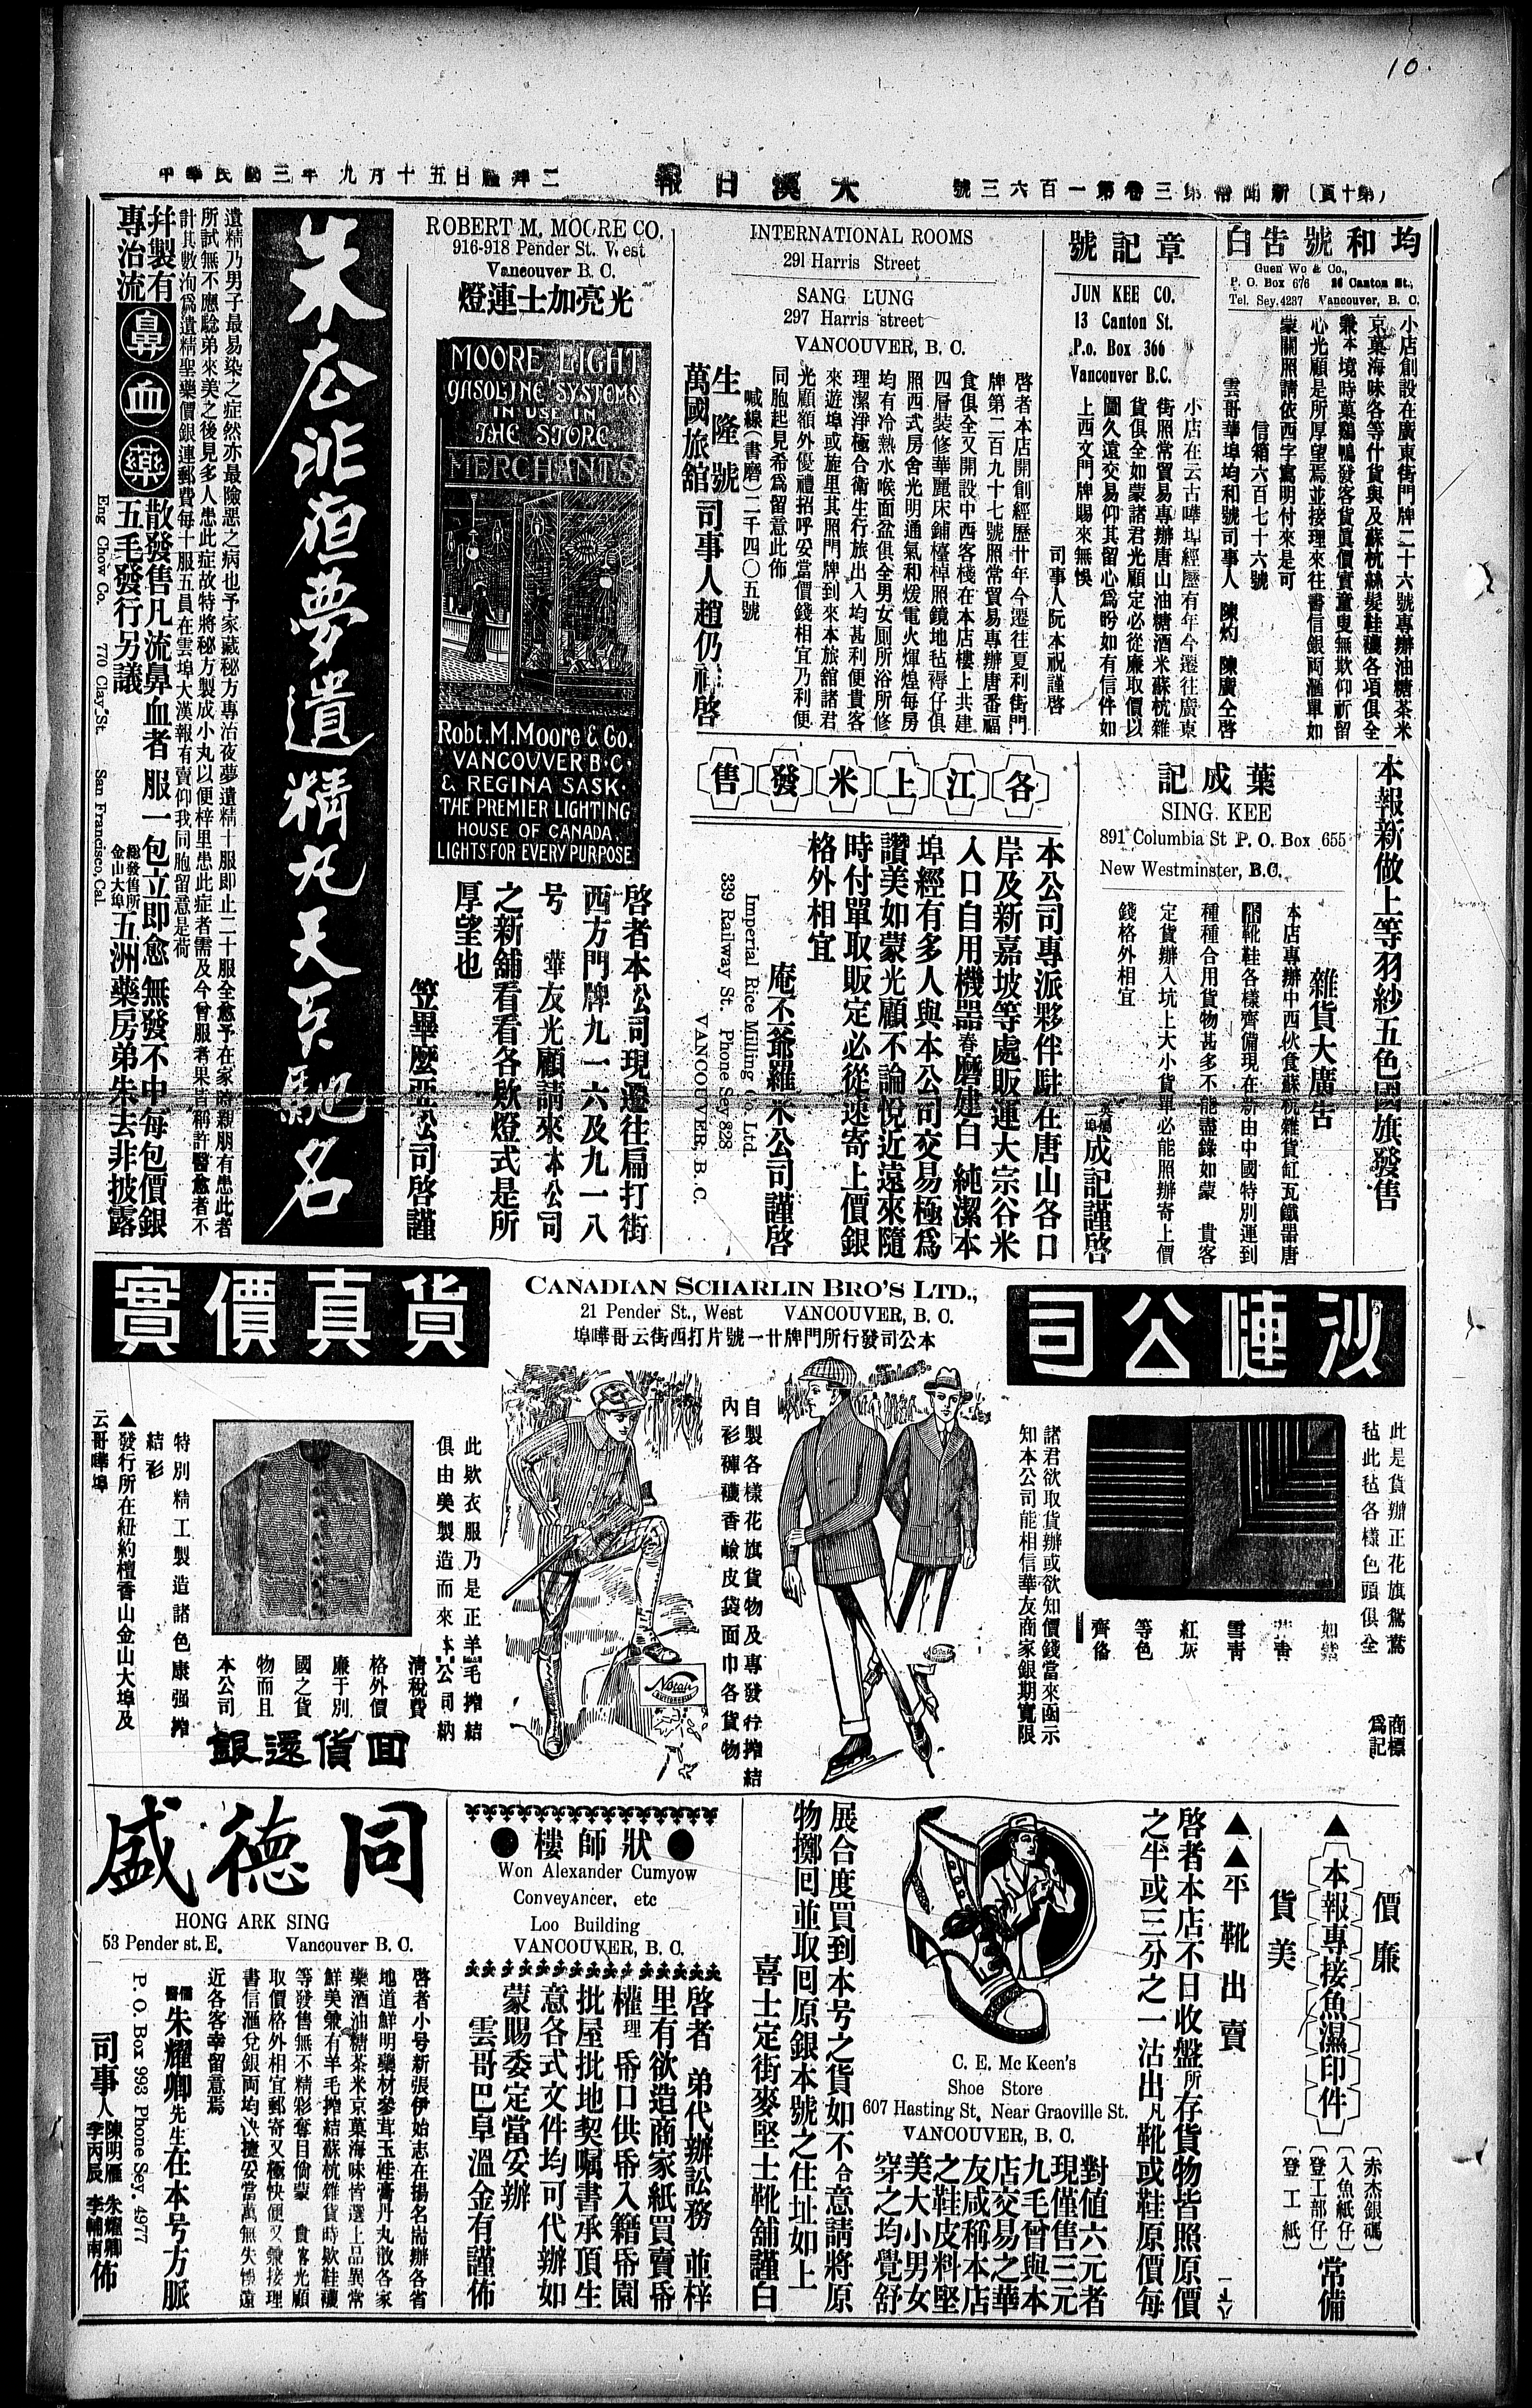 10.
（第十頁）新聞紙第三卷第一百六三號
大漢日報
中華民國三年九月十五日禮拜二
均和號告白
Guen Wo & Co.,
P. O. Box 676 26 Canton St.,
Tel. Sey.4287 Vancouver, B. C.
小店創設在廣東街門牌二十六號專辦油糖茶米
京菓海味各等什貨與及蘇杭絲髮鞋襪各項俱全
兼本境時菓鷄鴨發客貨眞價實童叟無欺仰祈留
心光顧是所厚望焉並接理來往書信銀両滙單如
蒙關照請依西字寫明付來是可
信箱六百七十六號
雲哥華埠均和號司事人 陳灼 陳廣仝啓
章記號
JUN KEE CO.
13 Canton St.
P.o. Box 366
Vancouver B.C.
小店在云古嘩埠經歷有年今遷往廣東
街照常貿易專辦唐山油糖酒米蘇杭雜
貨俱全如蒙諸君光顧定必從廉取價以
圖久遠交易仰其留心爲盼如有信件如
上西文門牌賜來無悞
司事人阮本祝謹啓
INTERNATIONAL ROOMS
291 Harris Street
SANG LUNG
297 Harris street
VANCOUVER, B. C.
啓者本店開創經歷廿年今遷往夏利街門
牌第二百九十七號照常貿易專辦唐番福
食俱全又開設中西客棧在本店樓上共建
四層裝修華麗床鋪檯椅照鏡地毡褥仔俱
照西式房舍光明通氣和煖電火煇煌每房
均有冷熱水喉面盆俱全男女厠所浴所修
理潔淨極合衛生行旅出入均甚利便貴客
來遊埠或旋里其照門牌到來本旅舘諸君
光顧額外優禮招呼妥當價錢相宜乃利便
同胞起見希爲留意此佈
喊線（書磨）二千四〇五號
生隆號
萬國旅舘
司事人趙仍祥啓
ROBERT M. MOORE CO.
916-918 Pender St. West
Vancouver B. C.
光亮加士連燈
MOORE LIGHT
GASOLINE SYSTEMS
IN USE IN
THE STORE
MERCHANTS
Robt. M. Moore & Co.
VANCOUVER B.C.
& REGINA SASK.
THE PREMIER LIGHTING
HOUSE OF CANADA.
LIGHTS FOR EVERY PURPOSE
啓者本公司現遷往扁打街
西方門牌九一六及九一八
号 華友光顧請來本公司
之新舖看看各欵燈式是所
厚望也
笠畢麼亞公司啓謹
朱公非夜夢遺精丸天下馳名
遺精乃男子最易染之症然亦最險惡之病也予家藏秘方專治夜夢遺精十服即止二十服全愈予在家時親朋有患此者
所試無不應騐弟來美之後見多人患此症故特將秘方製成小丸以便梓里患此症者需及今曾服者果言稱許醫愈者不
計其數洵爲遺精聖藥價銀連郵費每十服五員在雲埠大漢報有賣仰我同胞留意是荷
并製有
專治流
鼻血藥
散發售凡流鼻血者服一包立即愈無發不中每包價銀
五毛發行另議
總發售所
金山大埠
五洲藥房弟朱去非披露
Eng Chow Co. 770 Clay St. San Francisco, Cal.
本報新做上等羽紗五色國旗發售
葉成記
SING KEE
891 Columbia St P. O. Box 655
New Westminster, B.C.
雜貨大廣告
本店專辦中西伙食蘇杭雜貨缸瓦鐵器唐
靴鞋各樣齊備現在新由中國特別運到
種種合用貨物甚多不能盡錄如蒙 貴客
定貨辦入坑上大小貨單必能照辦寄上價
錢格外相宜
成記謹啓
各江上米發售
本公司專派夥伴駐在唐山各口
岸及新嘉坡等處販運大宗谷米
入口自用機器舂磨建白純潔本
埠經有多人與本公司交易極爲
讚美如蒙光顧不論悅近遠來隨
時付單取販定必從速寄上價銀
格外相宜
庵丕爺羅米公司謹啓
Imperial Rice Milling Co. Ltd.
339 Railway St. Phone Sey 828
VANCOUVER, B. C.
沙嗹公司
CANADIAN SCHARLIN BRO'S LTD.,
21 Pender St., West VANCOUVER, B. C.
本公司發行所門牌廿一號片打西街云哥嘩埠
貨真價實
此是貨辦正花旗鴛鴦
毡此毡各樣色頭俱全
如紫
雪青
紅灰
等色
齊俻
商標
爲記
諸君欲取貨辦或欲知價錢當來函示
知本公司能相信華友商家銀期寬限
自製各樣花旗貨物及專發行搾結
內衫褲襪香鹼皮袋面巾各貨物
此欵衣服乃是正羊毛搾結
俱由美製造而來本公司納
清稅費
格外價
廉于別
國之貨
物而且
本公司
回貨還銀
特別精工製造諸色康强搾
結衫
▲發行所在紐約檀香山金山大埠及
云哥嘩埠
價廉
▲本報專接魚濕印件
貨美
（赤杰銀碼）
（入魚紙仔）
（登工部仔）
（登工紙）
常備
▲▲平靴出賣
啓者本店不日收盤所存貨物皆照原價
之半或三分之一沽出凡靴或鞋原價每
對值六元者
現僅售三元
九毛曾與本
店交易之華
友咸稱本店
之鞋皮料堅
美大小男女
穿之均覺舒
C. E. Mc Keen's
Shoe Store
607 Hasting St. Near Graoville St.
VANCOUVER, B. C.
展合度買到本号之貨如不合意請將原
物擲囘並取囘原銀本號之住址如上
喜士定街麥堅士靴舖謹白
狀師樓
Won Alexander Cumyow
Conveyancer, etc
Loo Building
VANCOUVER, B. C.
啓者 弟代辦訟務 並梓
里有欲造商家紙買賣帋
權理帋口供帋入籍帋園
批屋批地契嘱書承頂生
意各式文件均可代辦如
蒙賜委定當妥辦
雲哥巴阜溫金有謹佈
同德盛
HONG ARK SING
53 Pender st. E. Vancouver B. C.
啓者小号新張伊始志在揚名耑辦各省
地道鮮明藥材參茸玉桂膏丹丸散各家
藥酒油糖茶米京菓海味皆選上品異常
鮮美兼有羊毛搾結蘇杭雜貨時欵鞋襪
等發售無不精彩奪目倘蒙 貴客光顧
取價格外相宜郵寄又極快便又兼接理
書信滙兌銀両均快捷妥當萬無失悞遠
近各客幸留意焉
儒醫朱耀卿先生在本号方脈
P. O. Box 993 Phone Sey. 4977
司事人
陳明雁 朱耀卿
李丙辰 李輔南
佈